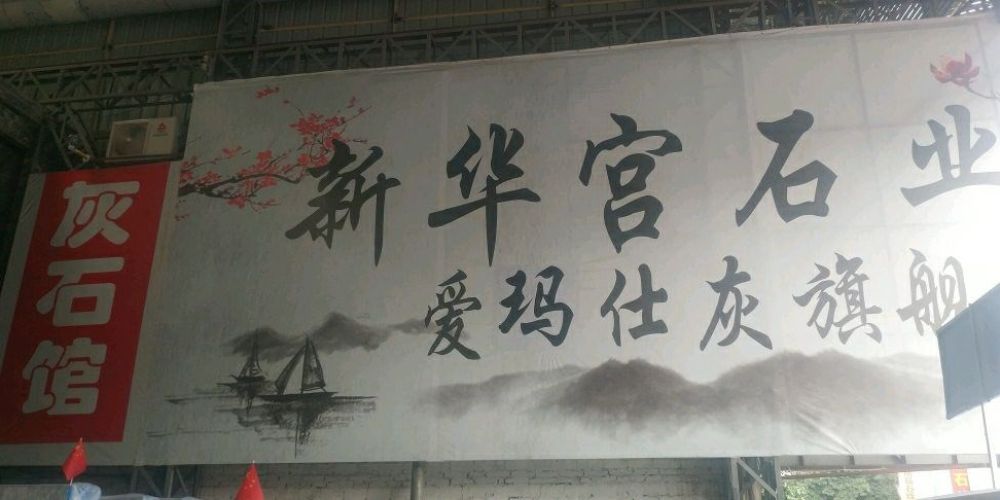 灰石馆
新华宫石业
爱玛仕灰旗舰